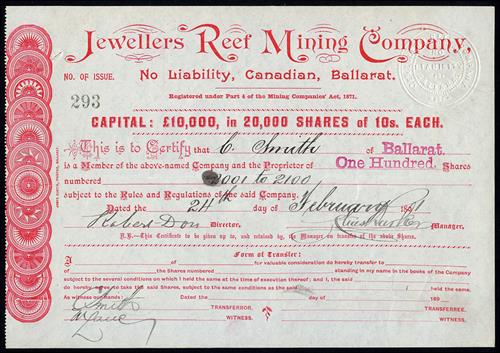 Jewellers Reef Mining Company,
NO. OF ISSUE. No Liability, Canadian, Ballarat.
293
Registered under Part 4 of the Mining Companies' Act, 1871.
CAPITAL: £10,000, in 20,000 SHARES of 10s. EACH.
This is to Certify that C. Smith of Ballarat.
is a Member of the above-named Company and the Proprietor of One Hundred. Shares
numbered 2001 to 2100
subject to the Rules and Regulations of the said Company.
Dated the 24th day of February 189
Robert Don Director, Manager,
N.B.—This Certificate to be given up to, and retained by, the Manager on transfer of the above Shares.
Form of Transfer:
I, of for valuable consideration do hereby transfer to
of the Shares numbered standing in my name in the books of the Company
subject to the several conditions on which I held the same at the time of execution thereof; and I, the said
do hereby agree to take the said Shares, subject to the same conditions as the said held the same.
As witness our hands: Dated the day of 189
C Smith TRANSFEROR. TRANSFEREE.
WITNESS. WITNESS.